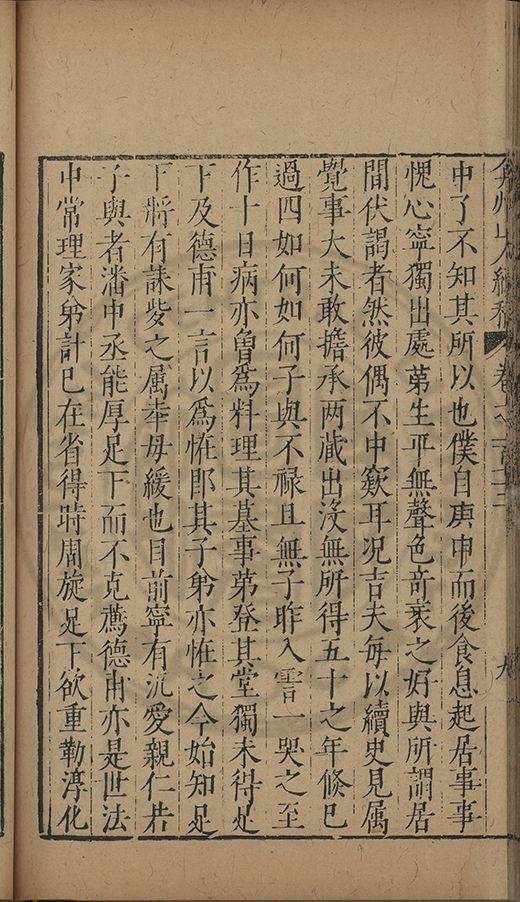 弇州山人續稿 卷之一百
中了不知其所以也僕自庚申而後食息起居事事
愧心寧獨出處第生平無聲色奇衺之好與所謂居
間伏謁者然彼偶不中窾耳况吉夫每以續史見属
覺事大未敢擔承两藏出沒無所得五十之年條已
過四如何如何子與不禄且無子昨入霅一哭之至
作十日病亦魯爲料理其墓事第登其堂獨未得足
下及德甫一言以爲恠卽其子弟亦恠之今始知足
下將有誄㱔之属幸毋緩也目前寧有汎愛親仁若
子與者潘中丞能厚足下而不克薦德甫亦是世法
中常理家弟計已在省得時周旋足下欲重勒淳化